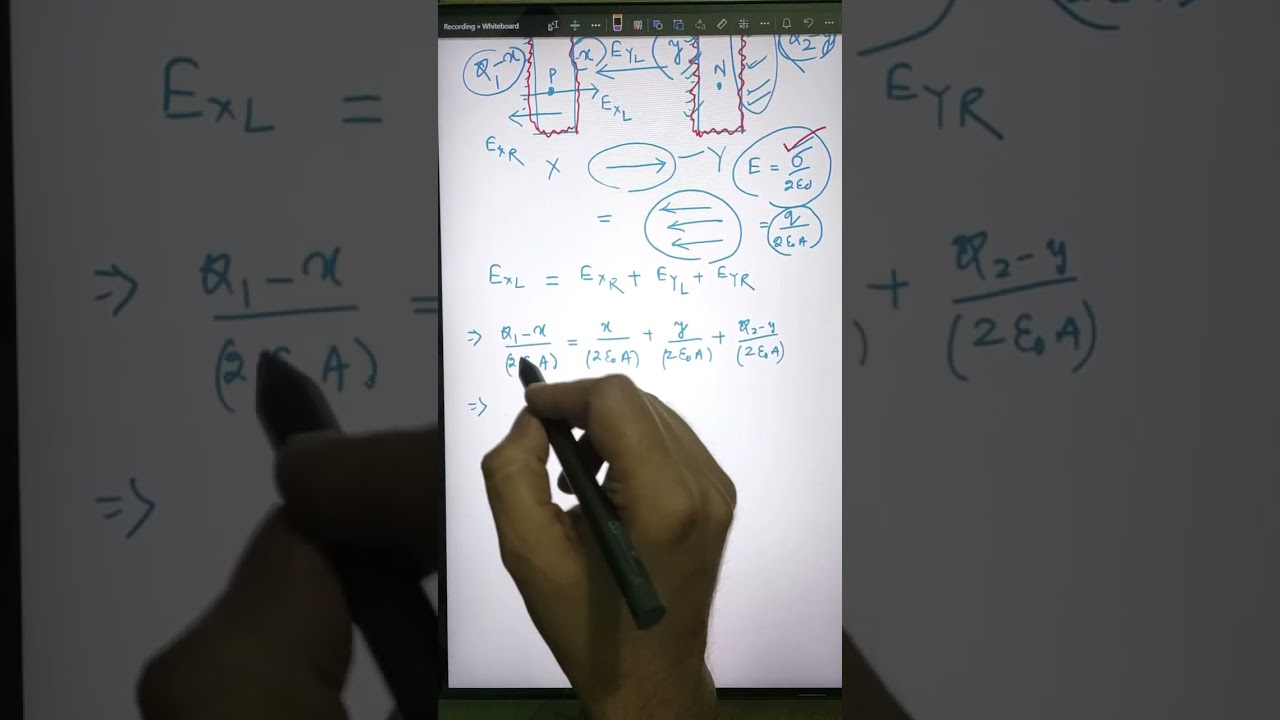 Recording » Whiteboard
Q₁-x x E_{YL} y Q₂-y
P N
E_{XL}
E_{XR} X Y E = σ/2ε₀
= = q/2ε₀A
E_{XL} = E_{XR} + E_{YL} + E_{YR}
⇒ Q₁-x/(2ε₀A) = x/(2ε₀A) + y/(2ε₀A) + Q₂-y/(2ε₀A)
⇒
E_{XL} = E_{YR}
⇒ Q₁-x/(2ε₀A) = + Q₂-y/(2ε₀A)
⇒